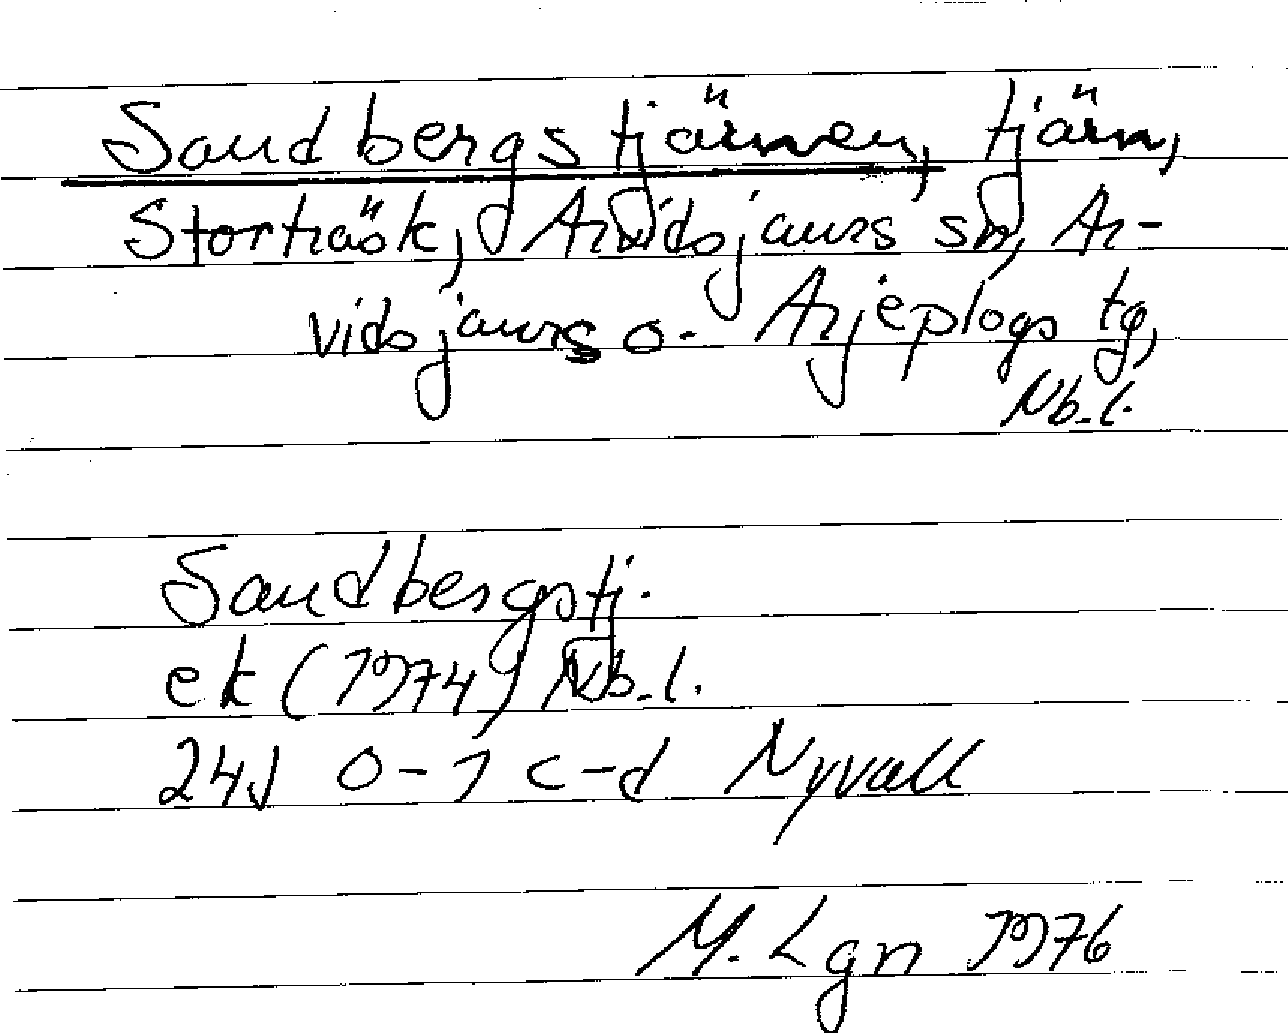 Sandbergstjärnen, tjärn,
Storträsk, Arvidsjaurs sn, Ar-
vidsjaurs o. Arjeplogs tg,
Nb. l.
Sandbergstj.
ek (1974) Nb. l.
24J 0-1 c-d Nyvall
M. Lgn 1976